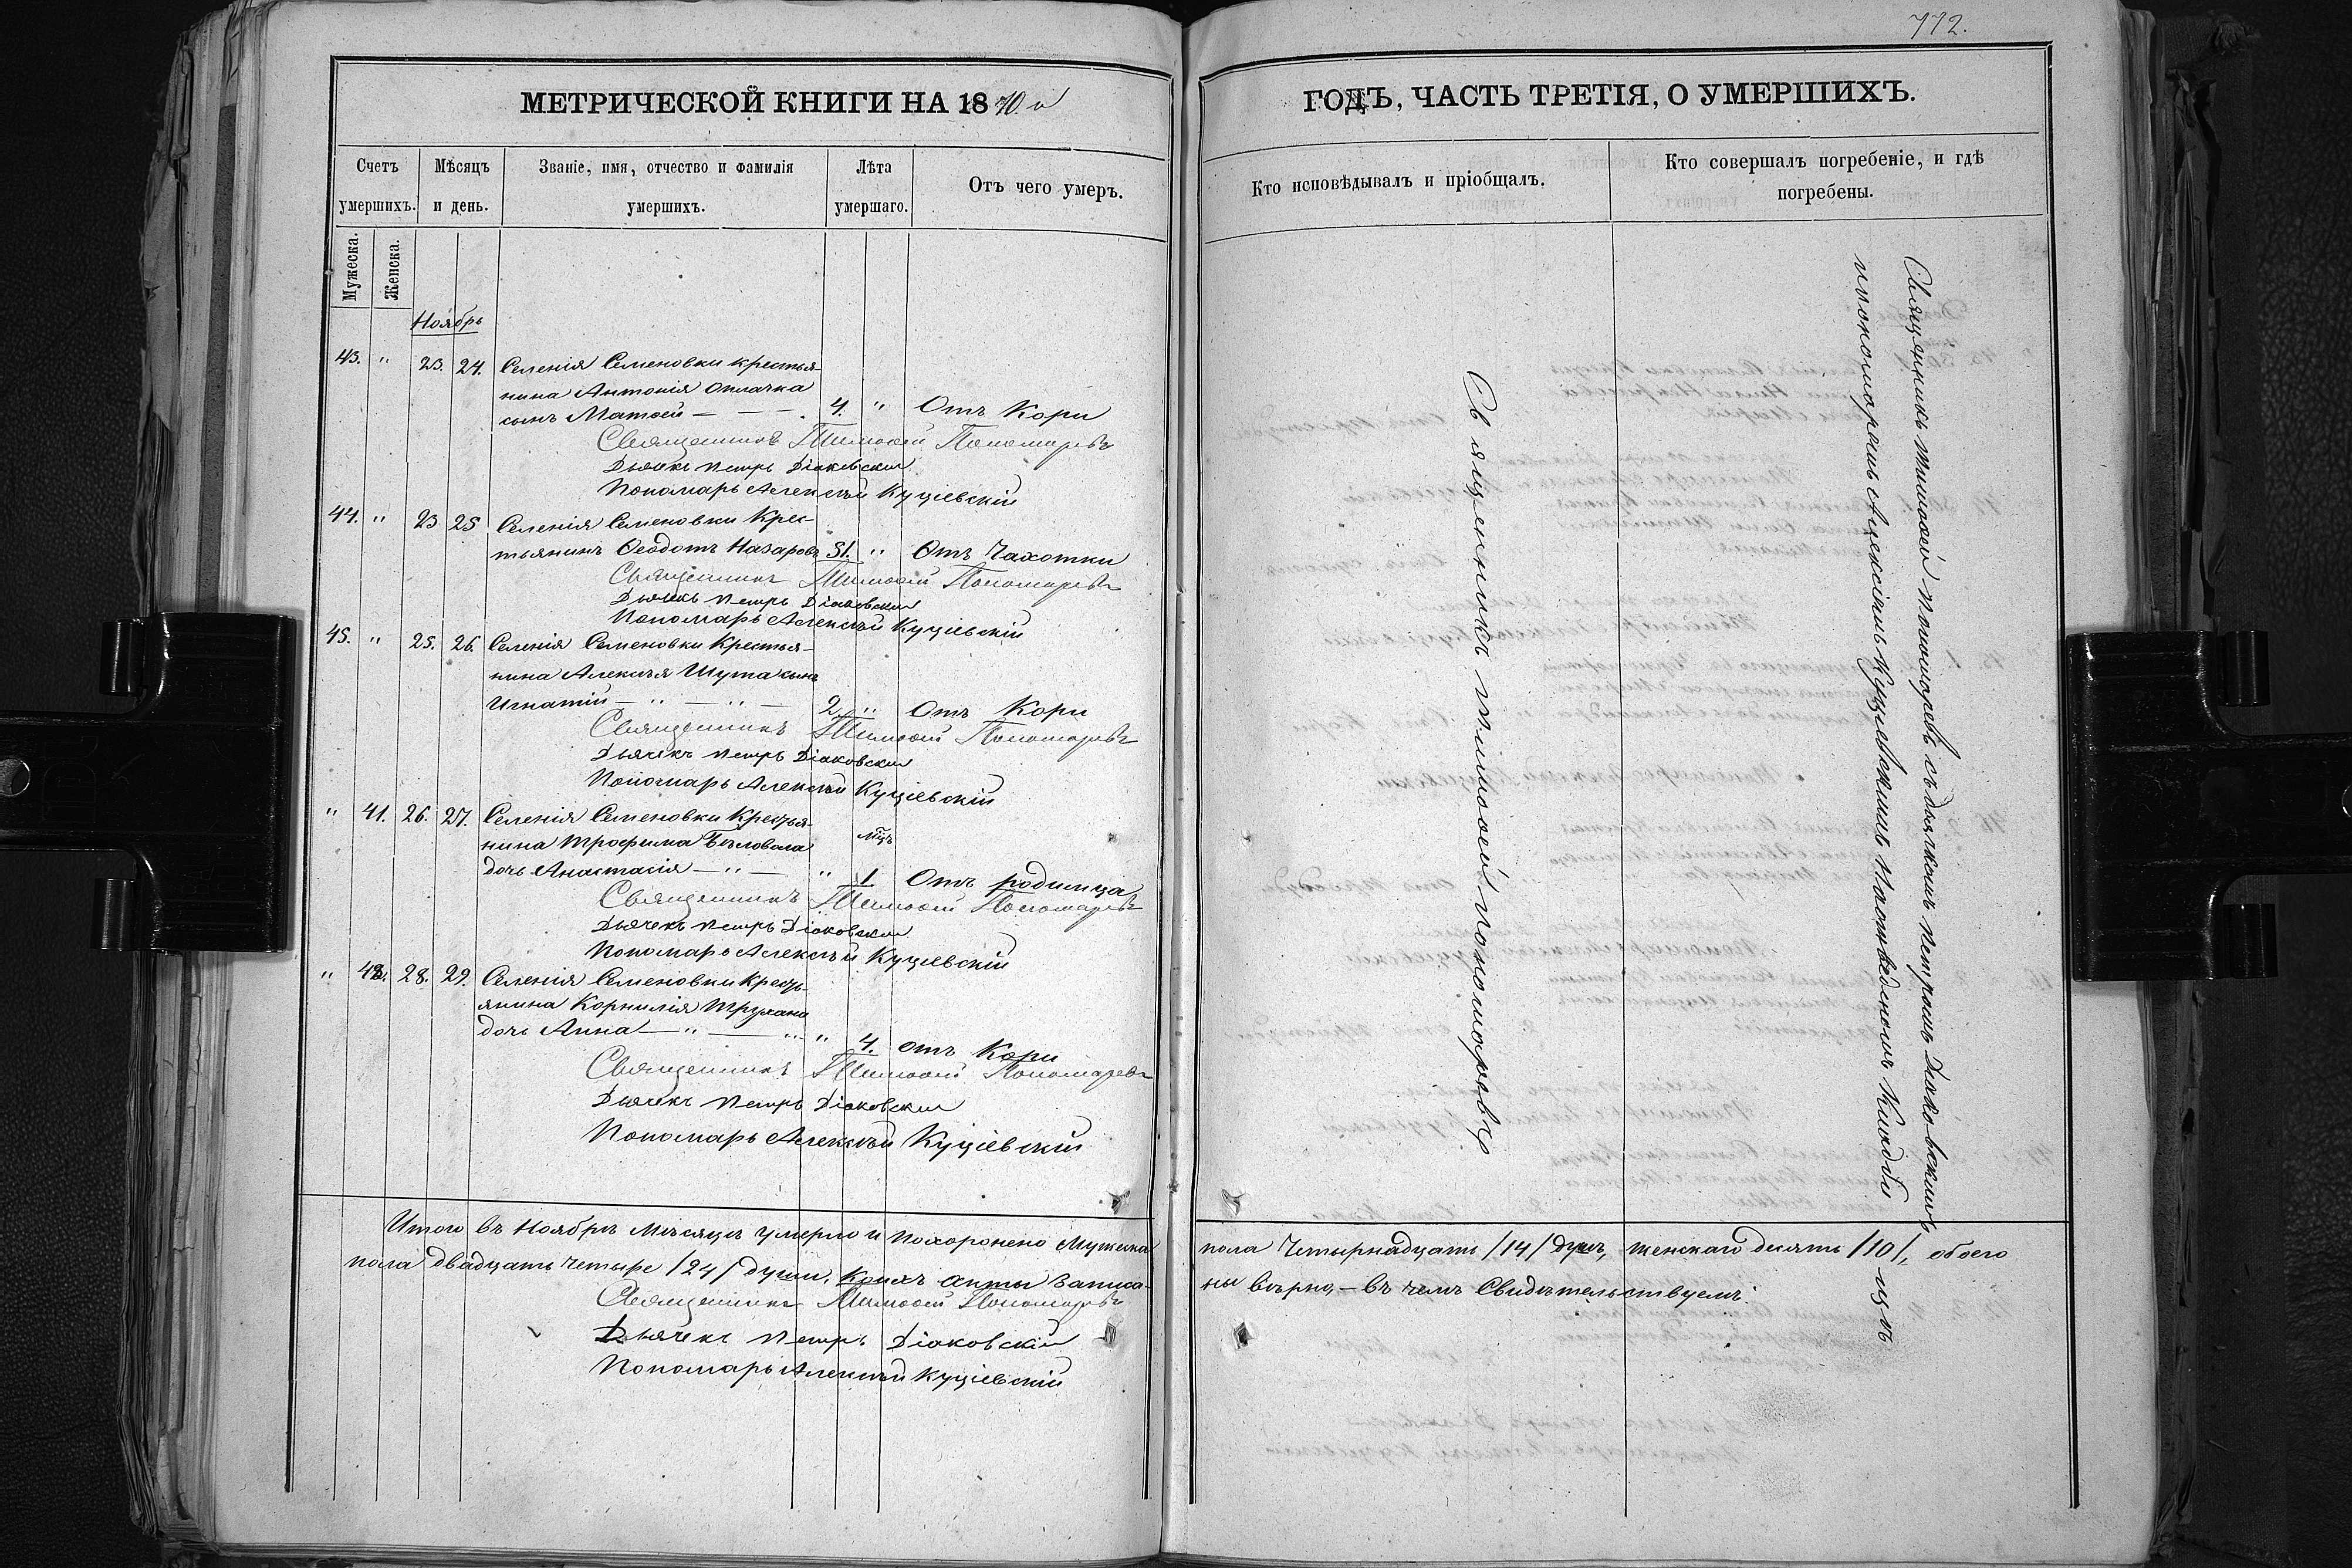 772.
МЕТРИЧЕСКОЙ КНИГИ НА 1870 й
ГОДЪ, ЧАСТЬ ТРЕТІЯ, О УМЕРШИХЪ.
Счетъ умершихъ.
Мѣсяцъ и день.
Званіе, имя, отчество и фамилія умершихъ.
Лѣта умершаго.
Отъ чего умеръ.
Кто исповѣдывалъ и пріобщалъ.
Кто совершалъ погребеніе, и гдѣ погребены.
Мужеска.
Женска.
Ноябрь
43. " 23. 24. Селенія Семеновки крестья-
нина Антонія Оплачка
сынъ Матѳей — — — 4. " Отъ Кори
Священникъ Тимоѳей Пономаревъ
Дьячекъ Петръ Діаковскій
Пономарь Алексѣй Куціевскій
44. " 23 25 Селенія Семеновки Крес-
тьянинъ Ѳеодотъ Назаровъ 51. " Отъ Чахотки
Священникъ Тимоѳей Пономаревъ
Дьячекъ Петръ Діаковскій
Пономарь Алексѣй Куціевскій
45. " 25. 26. Селенія Семеновки Крестья-
нина Алексѣя Шута сынъ
Игнатій — " — " — 2. " Отъ Кори
Священникъ Тимоѳей Пономаревъ
Дьячекъ Петръ Діаковскій
Пономарь Алексѣй Куціевскій
" 41. 26. 27. Селенія Семеновки Крестья-
нина Трофима Бѣловола мцъ
дочь Анастасія — " — " 1 Отъ родимца
Священникъ Тимоѳей Пономаревъ
Дьячекъ Петръ Діаковскій
Пономарь Алексѣй Куціевскій
" 42. 28. 29. Селенія Семеновки Кресть-
янина Корнилія Трухана
дочь Анна — " — " " 4. отъ Кори
Священникъ Тимоѳей Пономаревъ
Дьячекъ Петръ Діаковскій
Пономарь Алексѣй Куціевскій
Священникъ Тимоѳей Пономаревъ
Священникъ Тимоѳей Пономаревъ съ дьячкомъ Петромъ Діаковскимъ
и пономаремъ Алексѣемъ Куціевскимъ на отведенномъ кладби
щѣ
Итого въ Ноябрѣ мѣсяцѣ умерло и похоронено Мужеска
пола Четырнадцать /14/ душъ, женскаго десять /10/, обоего
пола двадцать четыре /24/ души, коихъ акты записа-
ны вѣрно, — въ чемъ Свидѣтельствуемъ.
Священникъ Тимоѳей Пономаревъ
Дьячекъ Петръ Діаковскій
Пономарь Алексѣй Куціевскій